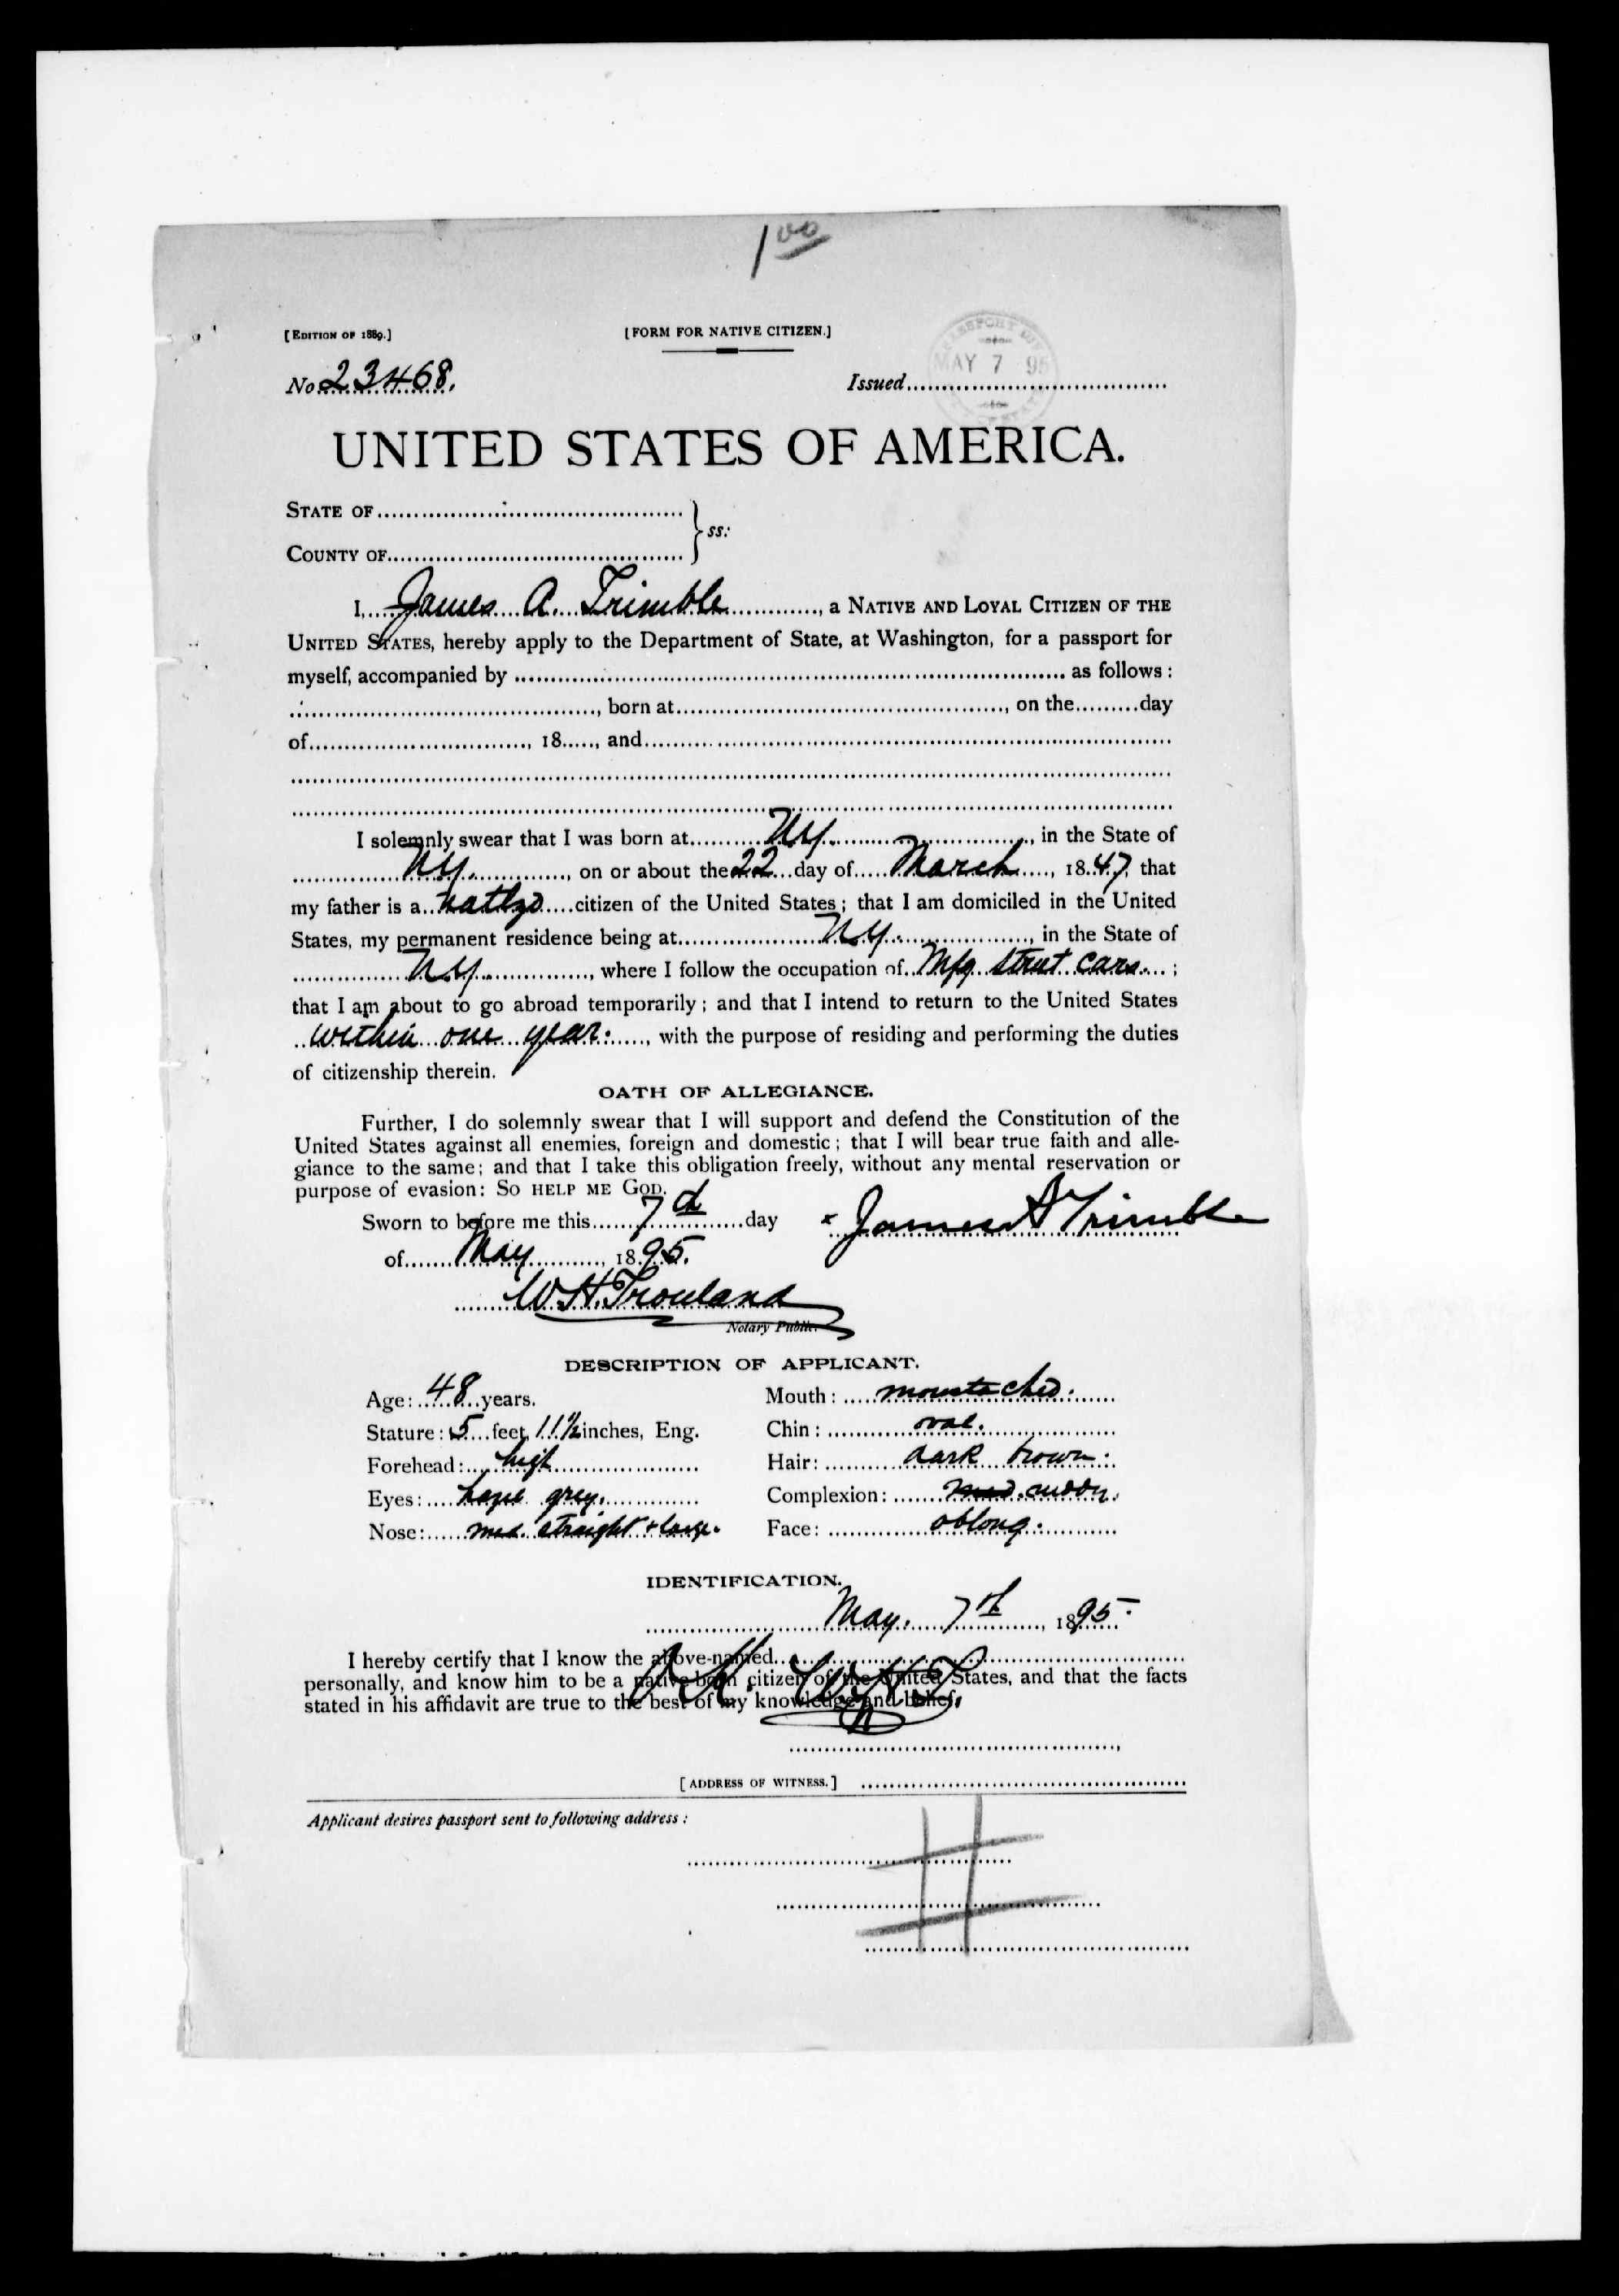 1 00
[EDITION OF 1889.] [FORM FOR NATIVE CITIZEN.]
PASSPORT MAY 7 95
No 23468. Issued
UNITED STATES OF AMERICA.
STATE OF
COUNTY OF } ss:
I, James A. Trimble, a NATIVE AND LOYAL CITIZEN OF THE
UNITED STATES, hereby apply to the Department of State, at Washington, for a passport for
myself, accompanied by as follows:
, born at , on the day
of , 18 , and
I solemnly swear that I was born at Ny. , in the State of
Ny. , on or about the 22 day of March , 1847, that
my father is a natlzd citizen of the United States; that I am domiciled in the United
States, my permanent residence being at Ny. , in the State of
Ny. , where I follow the occupation of Mfg street cars. ;
that I am about to go abroad temporarily; and that I intend to return to the United States
within one year. , with the purpose of residing and performing the duties
of citizenship therein.
OATH OF ALLEGIANCE.
Further, I do solemnly swear that I will support and defend the Constitution of the
United States against all enemies, foreign and domestic; that I will bear true faith and alle-
giance to the same; and that I take this obligation freely, without any mental reservation or
purpose of evasion: SO HELP ME GOD.
Sworn to before me this 7th day x James A Trimble
of May , 1895.
W. H.
Notary Public.
DESCRIPTION OF APPLICANT.
Age: 48 years. Mouth: moustached.
Stature: 5 feet, 11½ inches, Eng. Chin: oval.
Forehead: high Hair: dark brown.
Eyes: hazel grey. Complexion: med. ruddy.
Nose: med. straight + large. Face: oblong.
IDENTIFICATION.
May. 7th , 1895.
I hereby certify that I know the above-named
personally, and know him to be a native-born citizen of the United States, and that the facts
stated in his affidavit are true to the best of my knowledge and belief.
[ADDRESS OF WITNESS.]
Applicant desires passport sent to following address: